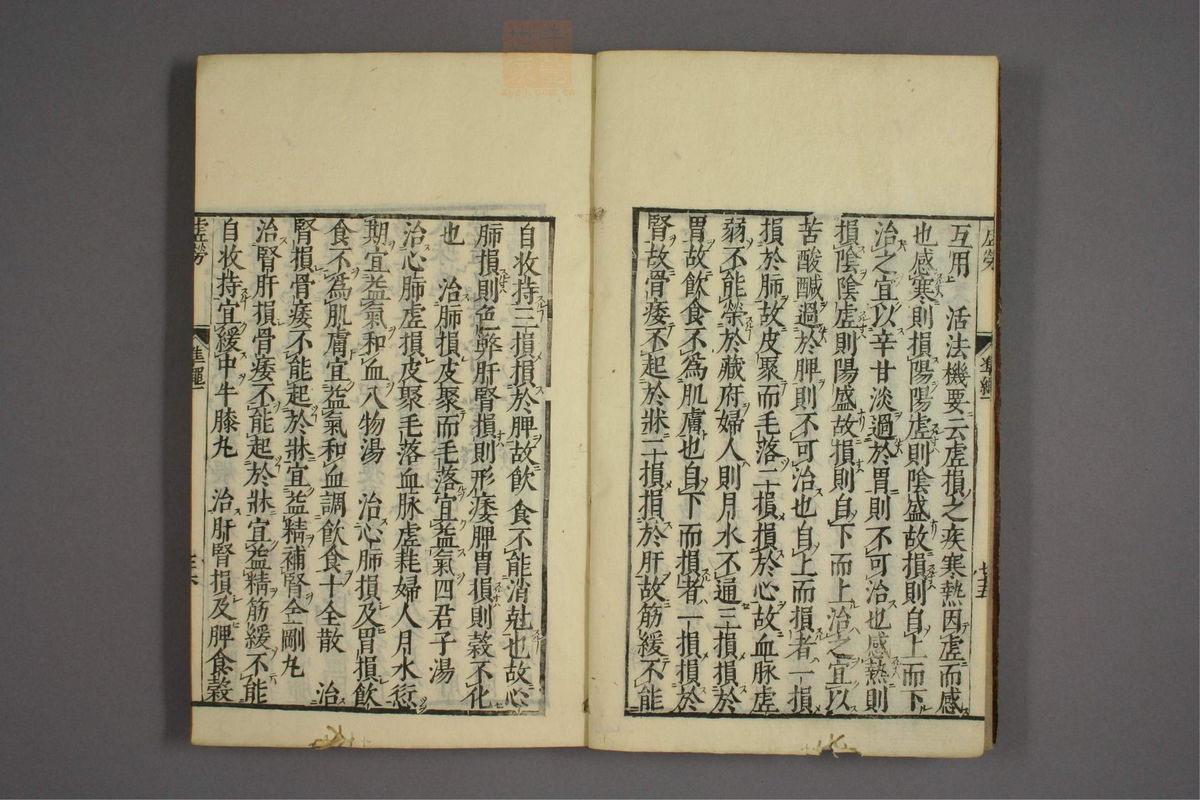 互用 活法機要云虚損之疾寒熱因虚而感
也感寒則損陽陽虚則陰盛故損則自上而下
治之宜以辛甘淡過於胃則不可治也感熱則
損陰陰虚則陽盛故損則自下而上治之宜以
苦酸鹹過於脾則不可治也自上而損者一損
損於肺故皮聚而毛落二損損於心故血脉虚
弱不能榮於藏府婦人則月水不通三損損於
胃故飲食不為肌膚也自下而損者一損損於
腎故骨痿不起於牀二損損於肝故筋緩不能
自收持三損損於脾故飲食不能消尅也故心
肺損則色弊肝腎損則形痿脾胃損則榖不化
也 治肺損皮聚而毛落宜益氣四君子湯
治心肺虚損皮聚毛落血脉虚耗婦人月水愆
期宜益氣和血八物湯 治心肺損及胃損飲
食不為肌膚宜益氣和血調飲食十全散 治
腎損骨痿不能起於牀宜益精補腎金剛丸
治腎肝損骨痿不能起於牀宜益精筋緩不能
自收持宜緩中牛膝丸 治肝腎損及脾食榖
虚勞
準繩